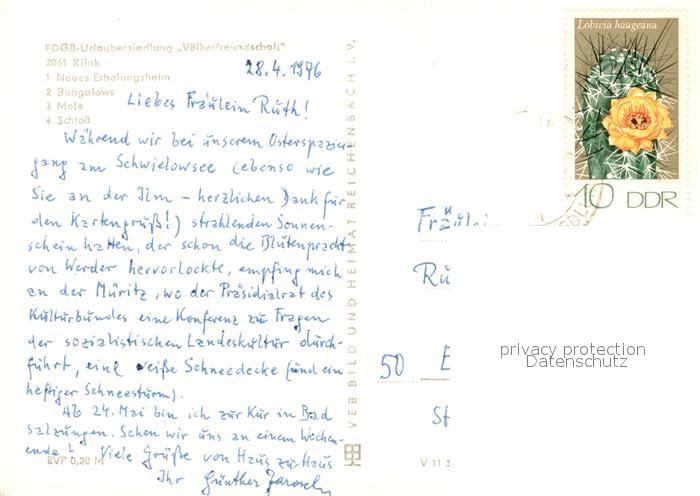 FDGB-Urlaubersiedlung „Völkerfreundschaft"
2061 Klink
1 Neues Erholungsheim
2 Bungalows
3 Mole
4 Schloß
28.4.1976
Liebes Fräulein Ruth!
Während wir bei unserem Osterspazier-
gang am Schwielowsee (ebenso wie
Sie an der Ilm – herzlichen Dank für
den Kartengruß!) strahlenden Sonnen-
schein hatten, der schon die Blütenpracht
von Werder hervorlockte, empfing mich
an der Müritz, wo der Präsidialrat des
Kulturbundes eine Konferenz zu Fragen
der sozialistischen Landeskultur durch-
führt, eine weiße Schneedecke (und ein
heftiger Schneesturm).
Ab 24. Mai bin ich zur Kur in Bad
Salzungen. Sehen wir uns an einem Wochen-
ende? Viele Grüße von Haus zu Haus
Ihr Günther
EVP 0,20 M
VEB BILD UND HEIMAT REICHENBACH I. V.
V 11 5
Lobivia haageana
10 DDR
Fräulein
Ru
50 E
St
privacy protection
Datenschutz